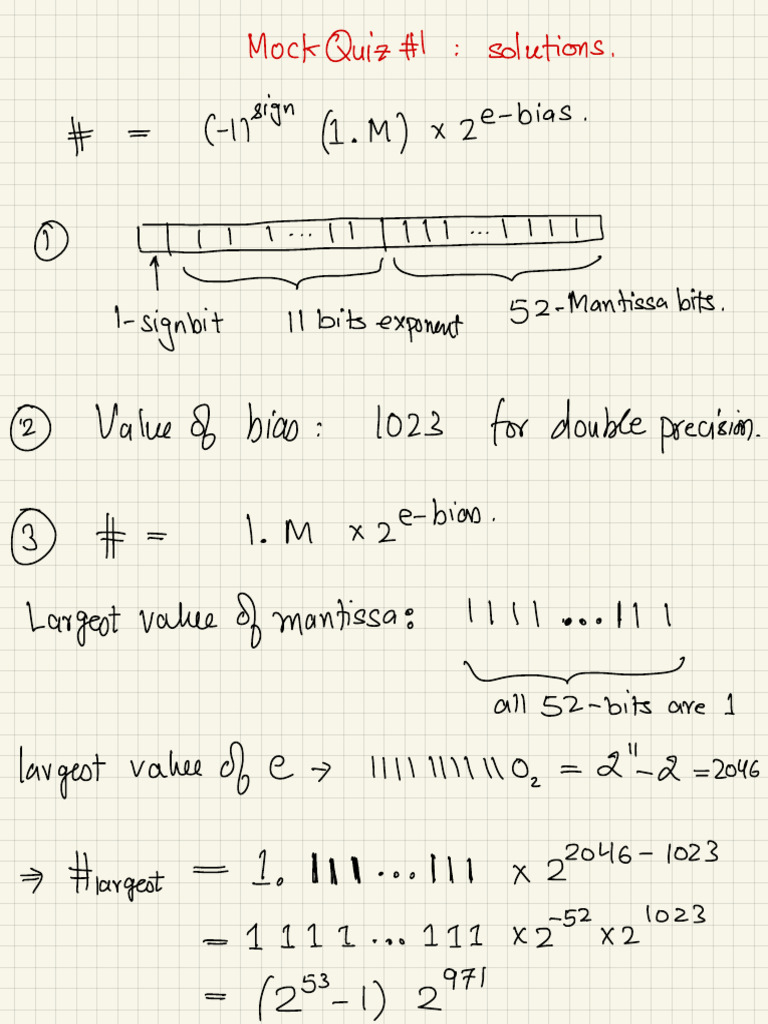 Mock Quiz #1 : solutions.
# = (-1)^sign (1.M) × 2^e-bias.
① 1 1 1 ... 1 1 1 1 1 ... 1 1 1 1
1-signbit 11 bits exponent 52-Mantissa bits.
② Value of bias: 1023 for double precision.
③ # = 1.M × 2^e-bias.
Largest value of mantissa: 1111 ... 111
all 52-bits are 1
largest value of e → 11111111110₂ = 2^11 - 2 = 2046
⇒ #largest = 1.111...111 × 2^2046-1023
= 1111...111 × 2^-52 × 2^1023
= (2^53 - 1) 2^971